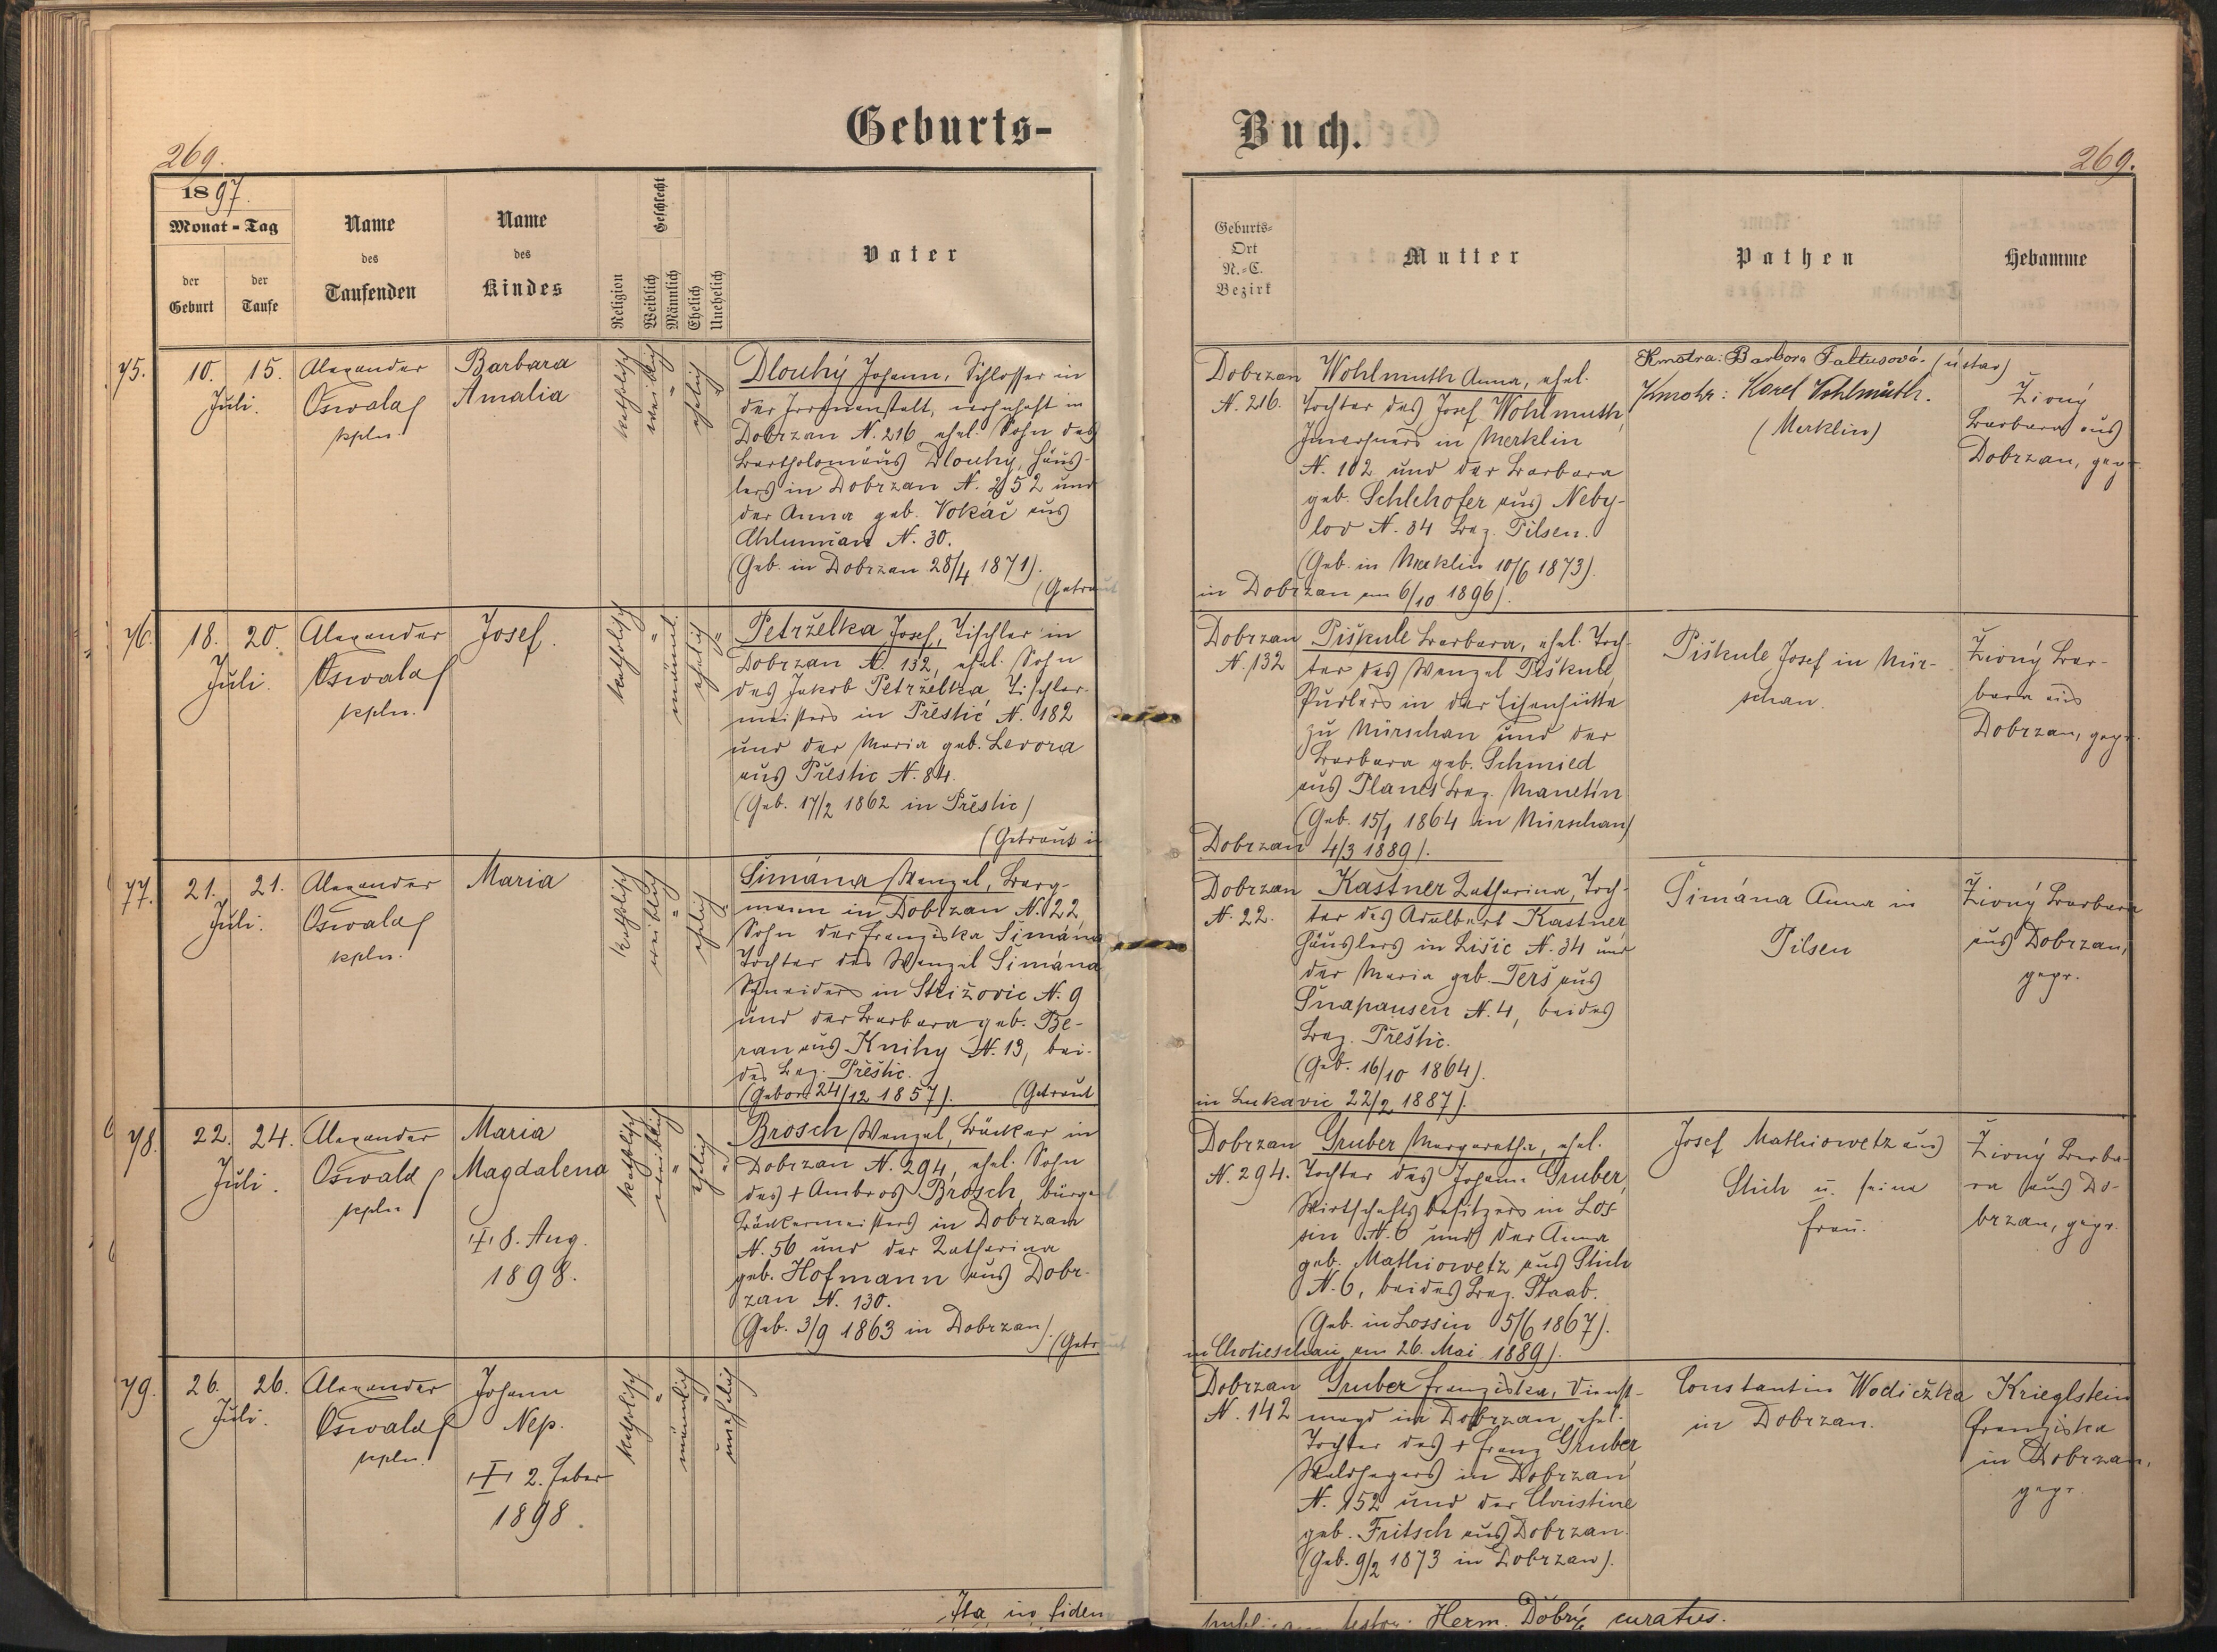 Geburts-
Buch.
269.
269.
1897.
Monat - Tag
der Geburt
der Taufe
Name des Taufenden
Name des Kindes
Religion
Geschlecht
Weiblich
Männlich
Ehelich
Unehelich
Vater
Geburts- Ort N.-C. Bezirk
Mutter
Pathen
Hebamme
75.
10. 15.
Juli.
Alexander
Oswald
kpln.
Barbara
Amalia
katholisch
weiblich
ehelich
Dlouhý Johann, Schlosser in
der Irrenanstalt, wohnhaft in
Dobrzan N. 216, ehel. Sohn des
Bartholomäus Dlouhý, Häus-
lers in Dobrzan N. 252 und
der Anna geb. Vokáč aus
Chlumčan N. 30.
(Geb. in Dobrzan 28/4 1871).
(Getraut
Dobrzan
N. 216.
Wohlmuth Anna, ehel.
Tochter des Josef Wohlmuth,
Inwohners in Merklin
N. 102 und der Barbara
geb. Schlehofer aus Neby-
lov N. 34 Bez. Pilsen.
(Geb. in Merklin 10/6 1873).
in Dobrzan am 6/10 1896).
Kmotra: Barbora Faltusová. (ústav)
Kmotr: Karel Vohlmuth.
(Merklin)
Živný
Barbara aus
Dobrzan, gepr.
76.
18. 20.
Juli.
Alexander
Oswald
kpln.
Josef.
katholisch
männl.
ehelich
Petrželka Josef, Tischler in
Dobrzan N. 132, ehel. Sohn
des Jakob Petrželka, Tischler-
meisters in Přestic N. 182
und der Maria geb. Levora
aus Přestic N. 84.
(Geb. 17/2 1862 in Přestic)
(Getraut in
Dobrzan
N. 132
Piškule Barbara, ehel. Toch-
ter des Wenzel Piškule,
Pudlers in der Eisenhütte
zu Nürschan und der
Barbara geb. Schmied
aus Planes Bez. Manetin
(Geb. 15/1 1864 in Nürschan)
Dobrzan 4/3 1889).
Piškule Josef in Nür-
schan.
Živný Bar-
bara aus
Dobrzan, gepr.
77.
21. 21.
Juli.
Alexander
Oswald
kpln.
Maria
katholisch
weiblich
ehelich
Šimána Wenzel, Berg-
mann in Dobrzan N. 22,
Sohn der Franziska Šimána
Tochter des Wenzel Šimána
Schneiders in Střižovic N. 9
und der Barbara geb. Be-
ran aus Knihy N. 13, bei-
des Bez. Přeštic.
(Geboren 24/12 1857). (Getraut
Dobrzan
N. 22.
Kastner Katharina, Toch-
ter des Adalbert Kastner,
Häuslers in Lišic N. 34 und
der Maria geb. Terš aus
Šnapausen N. 4, beides
Bez. Přeštic.
(Geb. 16/10 1864).
in Lukavic 22/2 1887).
Šimána Anna in
Pilsen
Živný Barbara
aus Dobrzan,
gepr.
78.
22. 24.
Juli.
Alexander
Oswald
kpln
Maria
Magdalena
8. Aug.
1898.
katholisch
weiblich
ehelich
Brosch Wenzel, Bäcker in
Dobrzan N. 294, ehel. Sohn
des + Ambros Brosch, bürgerl
Bäckermeisters in Dobrzan
N. 56 und der Katharina
geb. Hofmann aus Dobr-
zan N. 130.
(Geb. 3/9 1863 in Dobrzan).
(Getraut
Dobrzan
N. 294.
Gruber Margaretha, ehel.
Tochter des Johann Gruber,
Wirtschaftsbesitzers in Los-
sin N. 6 und der Anna
geb. Mathiowetz aus Stich
N. 6, beides Bez. Staab.
(Geb. in Lossin 5/6 1867).
in Chotieschau am 26. Mai 1889).
Josef Mathiowetz aus
Stich u. seine
Frau.
Živný Barba-
ra aus Do-
brzan, gepr.
79.
26. 26.
Juli.
Alexander
Oswald
kpln.
Johann
Nep.
2. Feber
1898.
katholisch
männlich
unehelich
Dobrzan
N. 142
Gruber Franziska, Dienst-
magd in Dobrzan, ehel.
Tochter des + Franz Gruber
Waldhegers in Dobrzan
N. 152 und der Christine
geb. Fritsch aus Dobrzan.
(Geb. 9/2 1873 in Dobrzan).
Constantin Wodiczka
in Dobrzan.
Krieglstein
Franziska
in Dobrzan,
gepr.
Ita in fidem
Herm. Döbrý curatus.